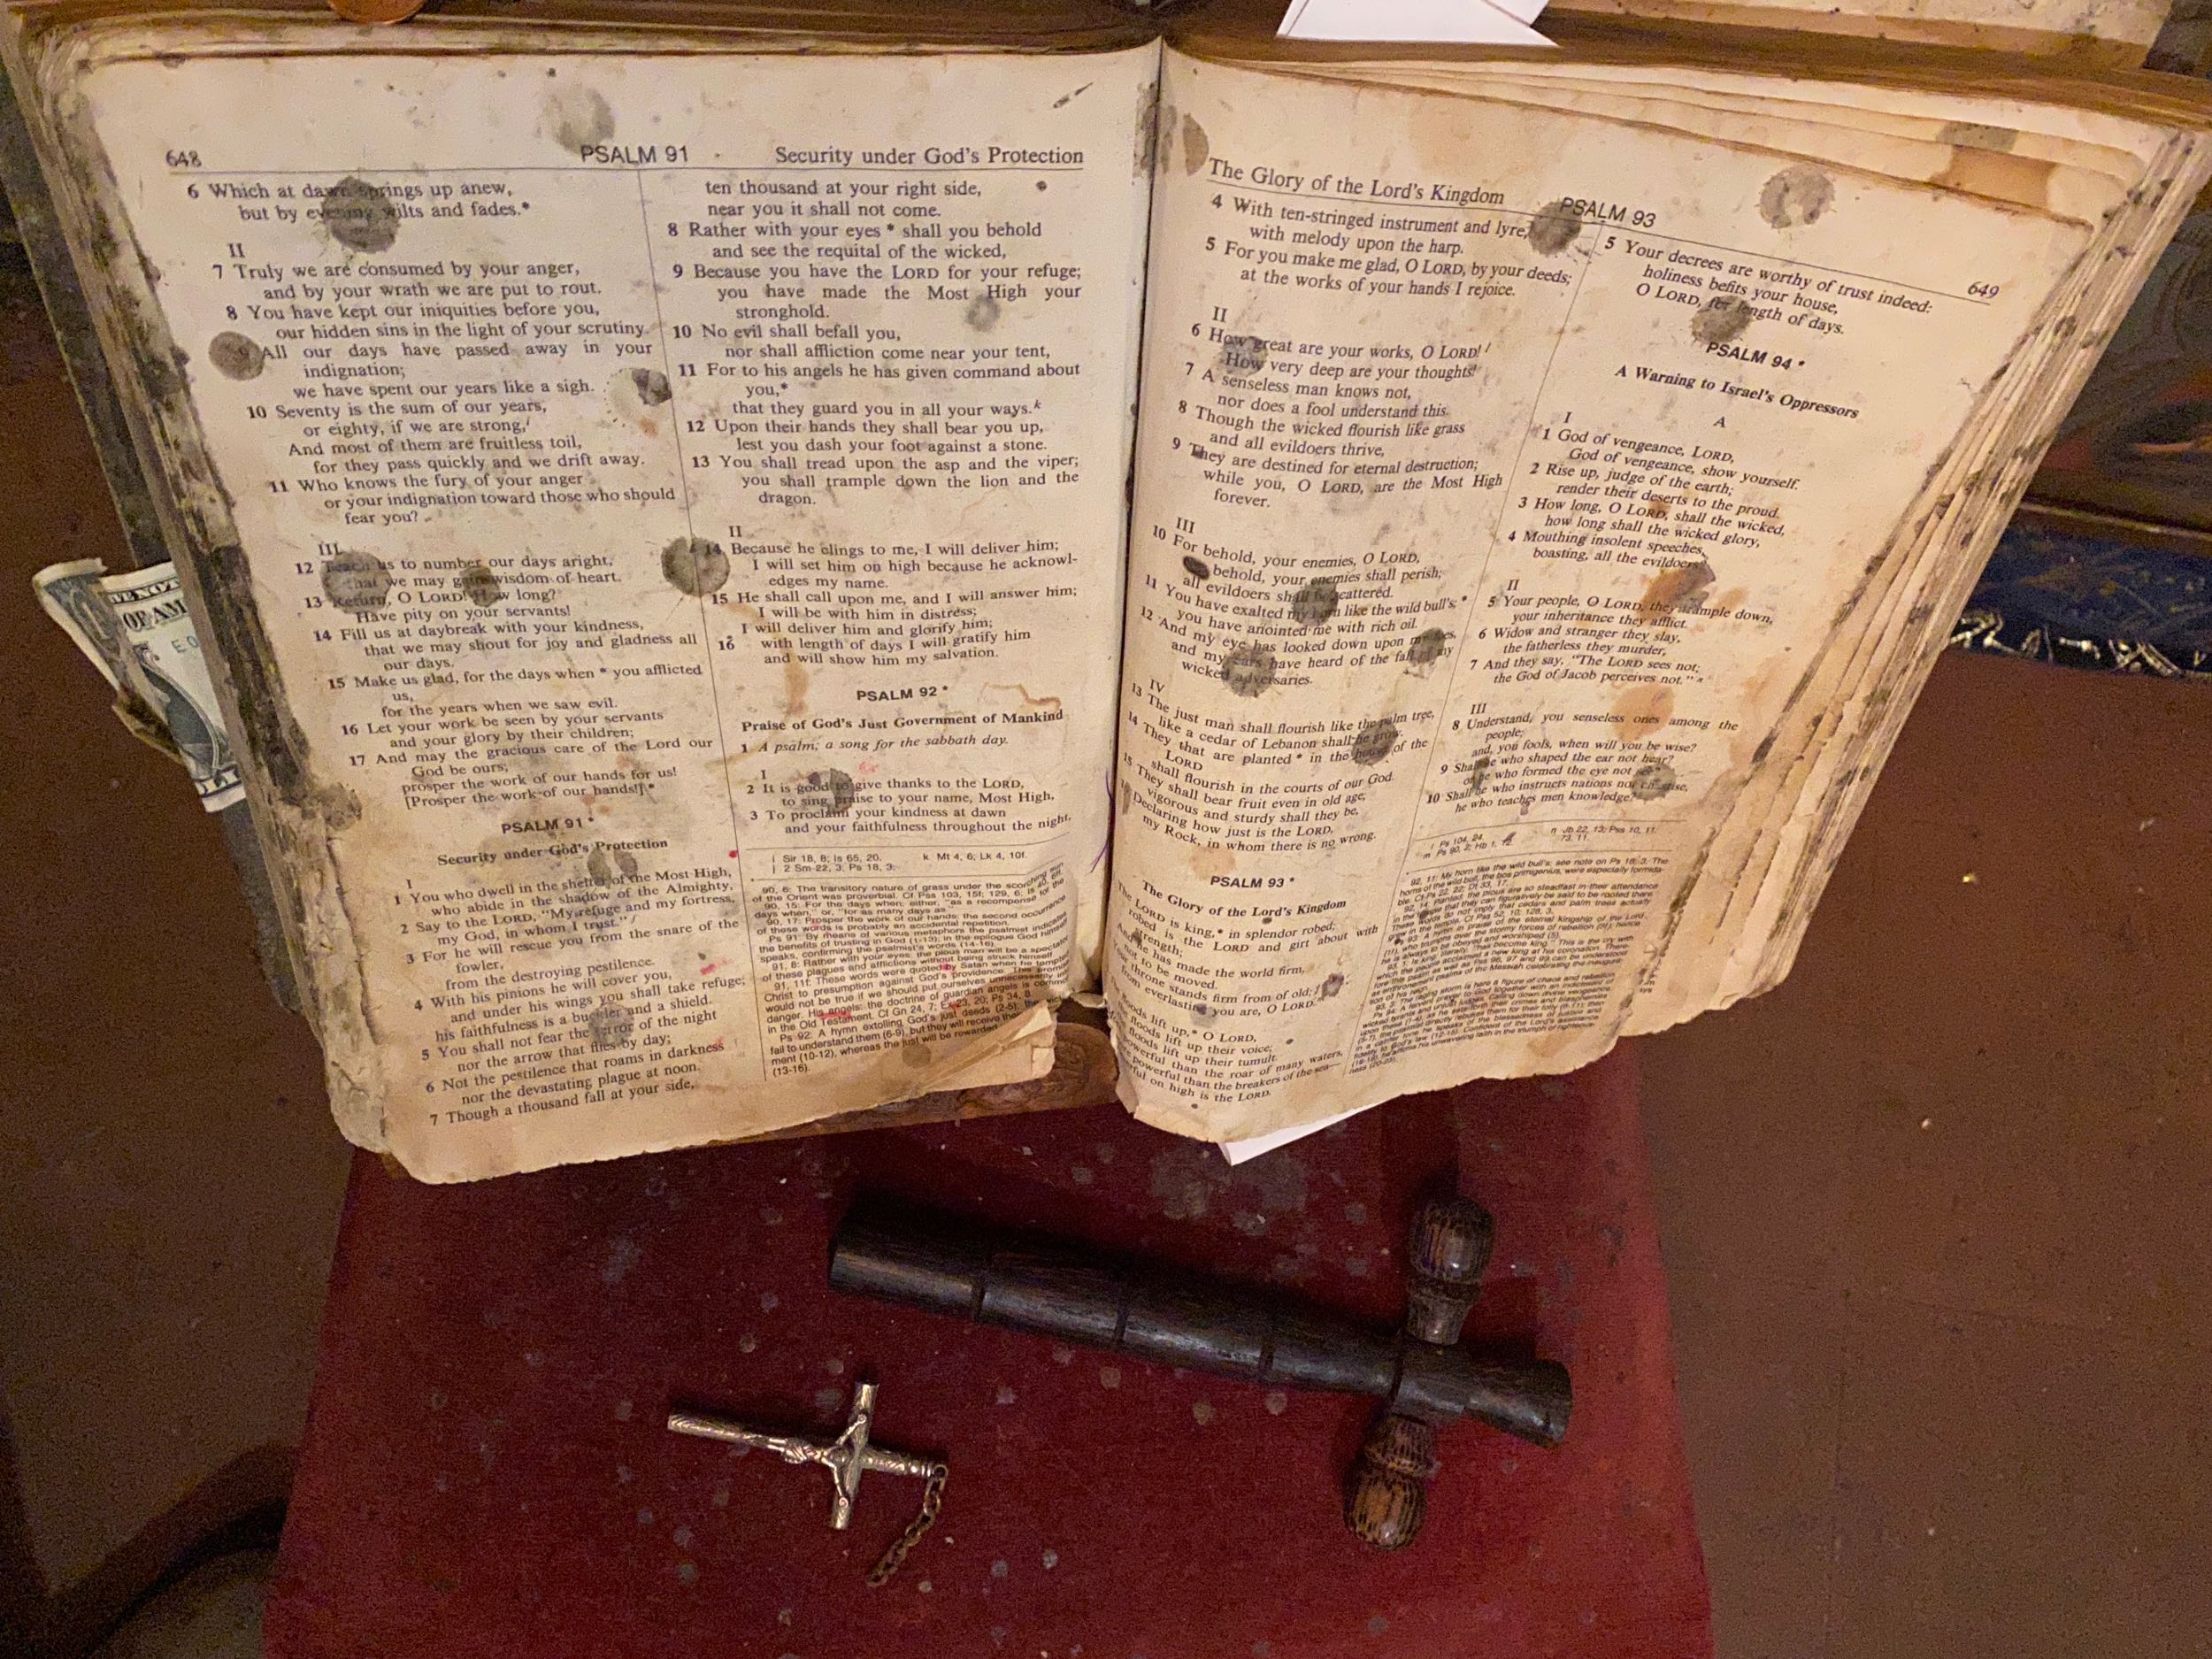 648
PSALM 91
Security under God's Protection
6 Which at dawn springs up anew,
but by evening wilts and fades.*
II
7 Truly we are consumed by your anger,
and by your wrath we are put to rout.
8 You have kept our iniquities before you,
our hidden sins in the light of your scrutiny.
9 All our days have passed away in your
indignation;
we have spent our years like a sigh.
10 Seventy is the sum of our years,
or eighty, if we are strong,
And most of them are fruitless toil,
for they pass quickly and we drift away.
11 Who knows the fury of your anger
or your indignation toward those who should
fear you?
III
12 Teach us to number our days aright,
that we may gain wisdom of heart.
13 Return, O LORD! How long?
Have pity on your servants!
14 Fill us at daybreak with your kindness,
that we may shout for joy and gladness all
our days.
15 Make us glad, for the days when * you afflicted
us,
for the years when we saw evil.
16 Let your work be seen by your servants
and your glory by their children;
17 And may the gracious care of the Lord our
God be ours;
prosper the work of our hands for us!
[Prosper the work of our hands!].*
PSALM 91 *
Security under God's Protection
I
1 You who dwell in the shelter of the Most High,
who abide in the shadow of the Almighty,
2 Say to the LORD, "My refuge and my fortress,
my God, in whom I trust." j
3 For he will rescue you from the snare of the
fowler,
from the destroying pestilence.
4 With his pinions he will cover you,
and under his wings you shall take refuge;
his faithfulness is a buckler and a shield.
5 You shall not fear the terror of the night
nor the arrow that flies by day;
6 Not the pestilence that roams in darkness
nor the devastating plague at noon.
7 Though a thousand fall at your side,
ten thousand at your right side,
near you it shall not come.
8 Rather with your eyes * shall you behold
and see the requital of the wicked,
9 Because you have the LORD for your refuge;
you have made the Most High your
stronghold.
10 No evil shall befall you,
nor shall affliction come near your tent,
11 For to his angels he has given command about
you,*
that they guard you in all your ways.k
12 Upon their hands they shall bear you up,
lest you dash your foot against a stone.
13 You shall tread upon the asp and the viper;
you shall trample down the lion and the
dragon.
II
14 Because he clings to me, I will deliver him;
I will set him on high because he acknowl-
edges my name.
15 He shall call upon me, and I will answer him;
I will be with him in distress;
I will deliver him and glorify him;
16 with length of days I will gratify him
and will show him my salvation.
PSALM 92 *
Praise of God's Just Government of Mankind
1 A psalm; a song for the sabbath day.
I
2 It is good to give thanks to the LORD,
to sing praise to your name, Most High,
3 To proclaim your kindness at dawn
and your faithfulness throughout the night,
i Sir 18, 8; Is 65, 20.
j 2 Sm 22, 3; Ps 18, 3.
k Mt 4, 6; Lk 4, 10f.
90, 6: The transitory nature of grass under the scorching
of the Orient was proverbial. Cf Pss 103, 15f; 129, 6, Is 40, 6ff.
90, 15: For the days when: either, "as a recompense for the
days when," or, "for as many days as"
90, 17: Prosper the work of our hands: the second occurrence
of these words is probably an accidental repetition.
Ps 91: By means of various metaphors the psalmist indicates
the benefits of trusting in God (1-13); in the epilogue God himself
speaks, confirming the psalmist's words (14-16).
91, 8: Rather with your eyes: the pious man will be a spectator
of these plagues and afflictions without being struck himself.
91, 11f: These words were quoted by Satan when he tempted
Christ to presumption against God's providence. This promise
would not be true if we should put ourselves unnecessarily in
danger. His angels: the doctrine of guardian angels is common
in the Old Testament. Cf Gn 24, 7; Ex 23, 20; Ps 34, 8.
Ps 92: A hymn extolling God's just deeds (2-5); the wicked
fail to understand them (6-9), but they will receive the
ment (10-12), whereas the just will be rewarded
(13-16).
The Glory of the Lord's Kingdom
PSALM 93
649
4 With ten-stringed instrument and lyre,
with melody upon the harp.
5 For you make me glad, O LORD, by your deeds;
at the works of your hands I rejoice.
II
6 How great are your works, O LORD! l
How very deep are your thoughts!
7 A senseless man knows not,
nor does a fool understand this.
8 Though the wicked flourish like grass
and all evildoers thrive,
9 They are destined for eternal destruction;
while you, O LORD, are the Most High
forever.
III
10 For behold, your enemies, O LORD,
behold, your enemies shall perish;
all evildoers shall be scattered.
11 You have exalted my horn like the wild bull's; *
you have anointed me with rich oil.
12 And my eye has looked down upon my foes,
and my ears have heard of the fall of my
wicked adversaries.
IV
13 The just man shall flourish like the palm tree,
like a cedar of Lebanon shall he grow.
14 They that are planted * in the house of the
LORD
shall flourish in the courts of our God.
15 They shall bear fruit even in old age;
vigorous and sturdy shall they be,
16 Declaring how just is the LORD,
my Rock, in whom there is no wrong.
PSALM 93 *
The Glory of the Lord's Kingdom
The LORD is king,* in splendor robed;
robed is the LORD and girt about with
strength;
And he has made the world firm,
not to be moved.
Your throne stands firm from of old;
from everlasting you are, O LORD.
The floods lift up,* O LORD,
the floods lift up their voice;
the floods lift up their tumult.
powerful than the roar of many waters,
powerful than the breakers of the sea—
powerful on high is the LORD.
5 Your decrees are worthy of trust indeed:
holiness befits your house,
O LORD, for length of days.
PSALM 94 *
A Warning to Israel's Oppressors
A
I
1 God of vengeance, LORD,
God of vengeance, show yourself.
2 Rise up, judge of the earth;
render their deserts to the proud.
3 How long, O LORD, shall the wicked,
how long shall the wicked glory,
4 Mouthing insolent speeches,
boasting, all the evildoers?
II
5 Your people, O LORD, they trample down,
your inheritance they afflict.
6 Widow and stranger they slay,
the fatherless they murder,
7 And they say, "The LORD sees not;
the God of Jacob perceives not." n
III
8 Understand, you senseless ones among the
people;
and, you fools, when will you be wise?
9 Shall he who shaped the ear not hear?
or he who formed the eye not see?
10 Shall he who instructs nations not chastise,
he who teaches men knowledge?
l Ps 104, 24.
m Ps 90, 2; Hb 1, 12.
n Jb 22, 13; Pss 10, 11;
73, 11.
92, 11: My horn like the wild bull's: see note on Ps 18, 3. The
horns of the wild bull, the bos primigenius, were especially formida-
ble. Cf Ps 22, 22; Dt 33, 17.
OF AM